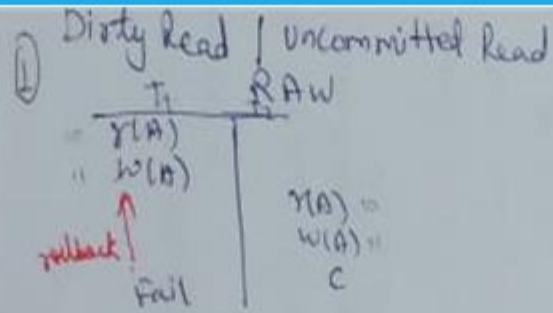 ① Dirty Read / Uncommitted Read
RAW
T1
r(A)
W(A)
r(A)
W(A)
rollback
C
Fail